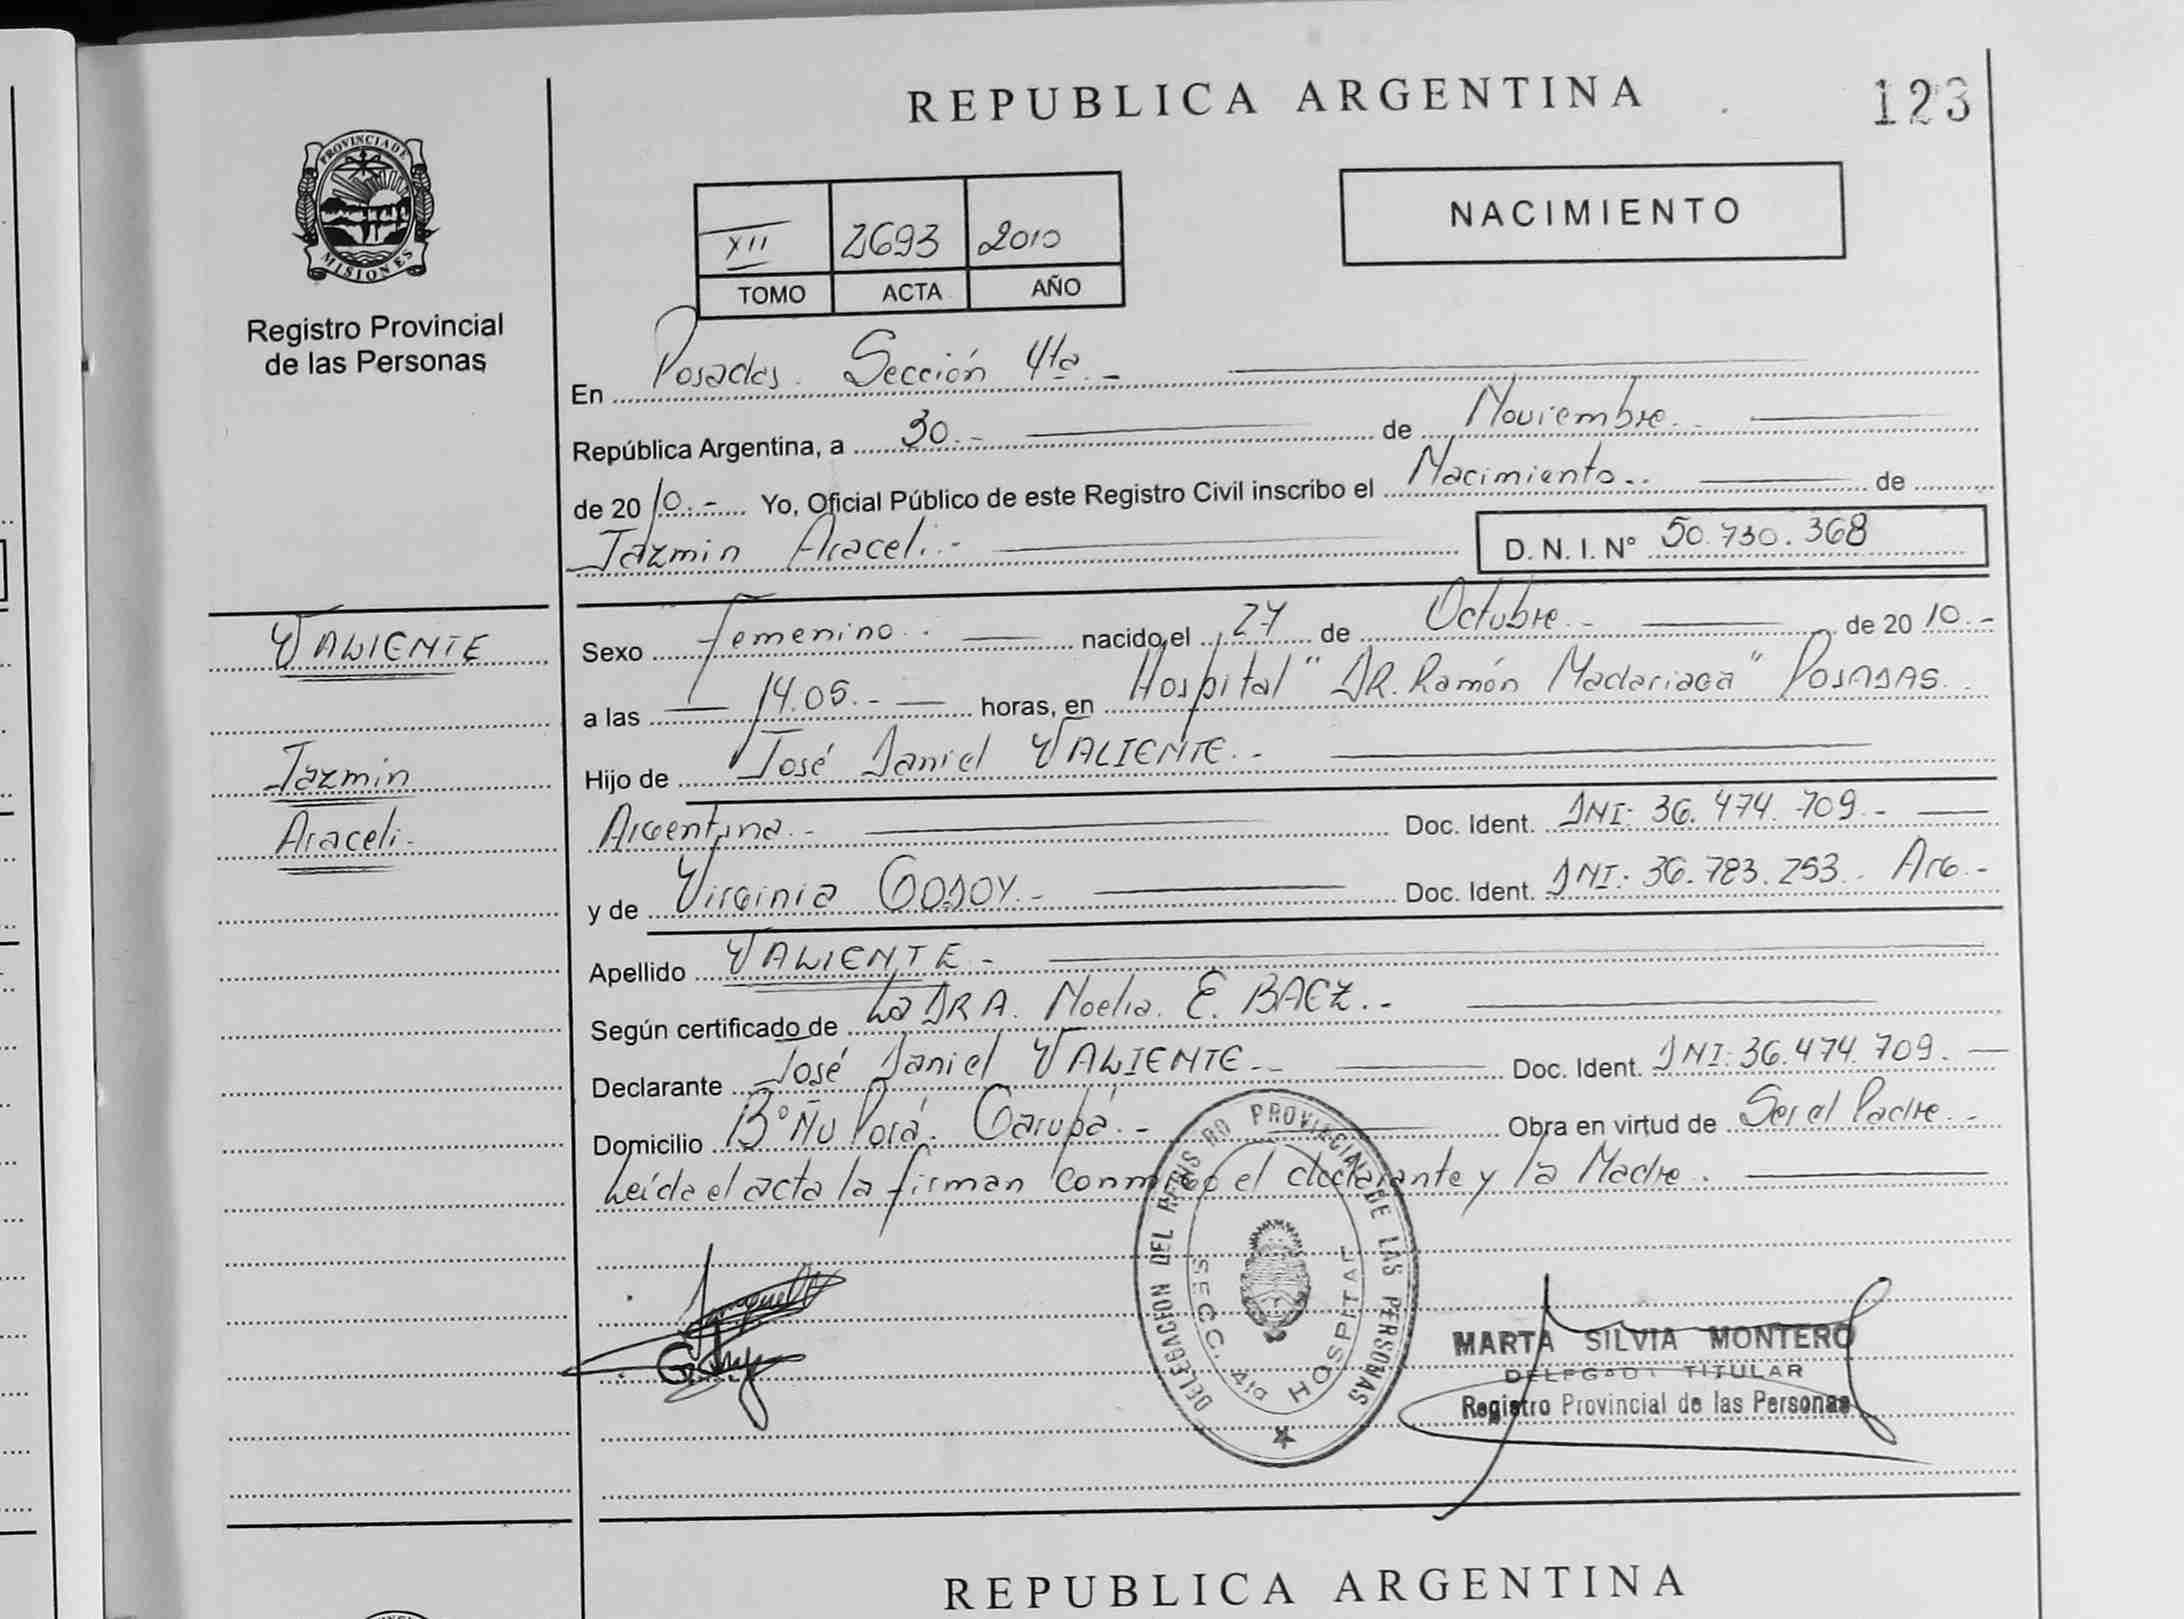 REPUBLICA ARGENTINA
123
PROVINCIA DE
MISIONES
Registro Provincial
de las Personas
NACIMIENTO
XII 2693 2010
TOMO ACTA AÑO
En Posadas. Sección 4ta.-
República Argentina, a 30.- de Noviembre.-
de 2010.- Yo, Oficial Público de este Registro Civil inscribo el Nacimiento.. de
Jazmin Araceli.- D. N. I. N° 50.730.368
VALIENTE
Jazmin
Araceli.-
Sexo Femenino.. nacido el 27 de Octubre.- de 2010.-
a las 14.05.- horas, en Hospital "DR. Ramón Madariaga" POSADAS.
Hijo de José Daniel VALIENTE.-
Argentina.- Doc. Ident. DNI: 36.474.709.-
y de Virginia GODOY.- Doc. Ident. DNI: 36.783.253.. Arg.-
Apellido VALIENTE.-
Según certificado de La DRA. Noelia. E. BAEZ.-
Declarante José Daniel VALIENTE.- Doc. Ident. DNI: 36.474.709.
Domicilio B° Ñu Porá. Garupá.- Obra en virtud de Ser el Padre.-
Leída el acta la firman conmigo el declarante y la Madre.
DELEGACION DEL REGISTRO PROVINCIAL DE LAS PERSONAS
SECC. 4ta HOSPITAL
MARTA SILVIA MONTERO
DELEGADO TITULAR
Registro Provincial de las Personas
REPUBLICA ARGENTINA